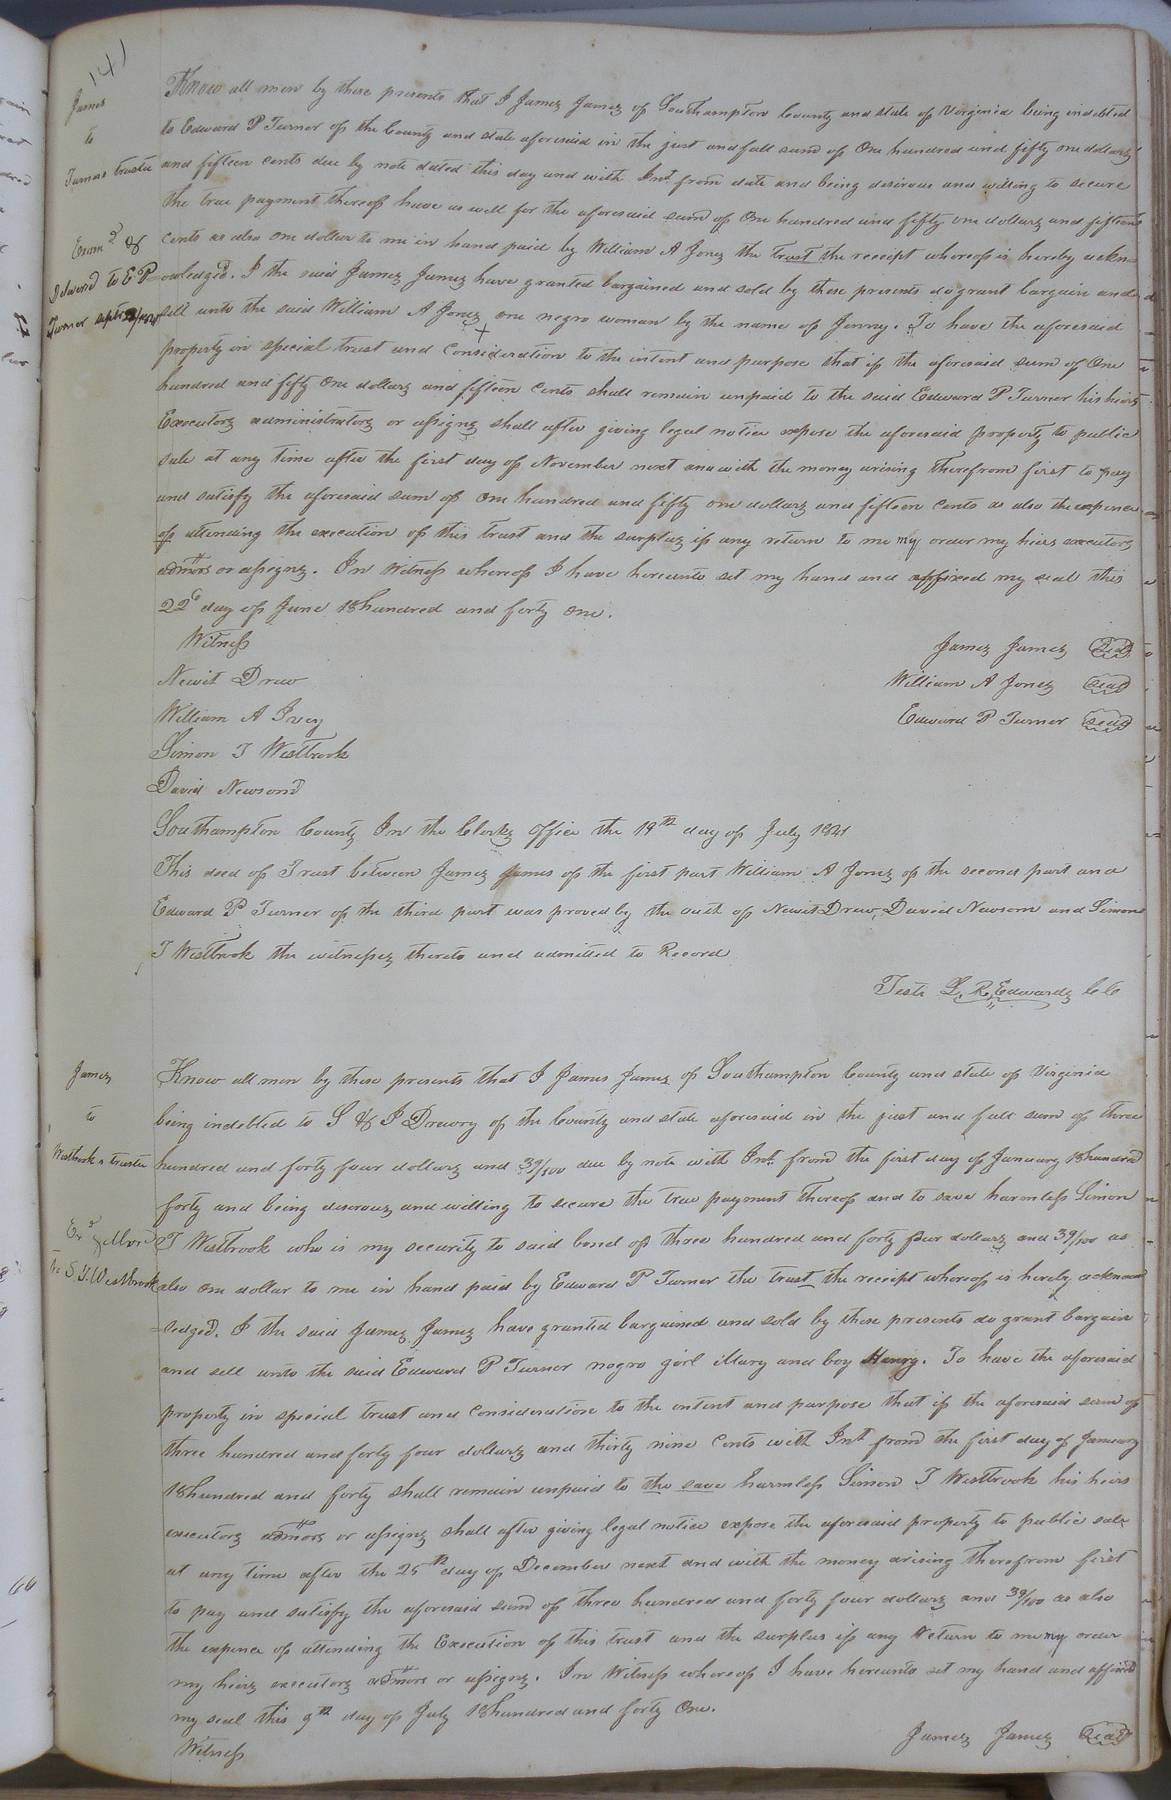 141
James
to
Turners trustee
Exmd &
Delivered to E P
Turner sept
Know all men by these presents that I James James of Southampton County and state of Virginia being indebted
to Edward P Turner of the County and state aforesaid in the just and full sum of One hundred and fifty one dollars
and fifteen cents due by note dated this day and with Int from date and being desirous and willing to secure
the true payment thereof have as well for the aforesaid sum of One hundred and fifty one dollars and fifteen
cents as also one dollar to me in hand paid by William A Jones the trust the receipt whereof is hereby ackn=
owledged. I the said James James have granted bargained and sold by these presents do grant bargain and
sell unto the said William A Jones one negro woman by the name of Jenny. To have the aforesaid
property in special trust and Consideration to the intent and purpose that if the aforesaid sum of One
hundred and fifty one dollars and fifteen Cents shall remain unpaid to the said Edward P Turner his heirs
Executors administrators or assigns shall after giving legal notice expose the aforesaid property to public
sale at any time after the first day of November next and with the money arising therefrom first to pay
and satisfy the aforesaid sum of One hundred and fifty one dollars and fifteen Cents as also the expence
of attending the execution of this trust and the surplus if any return to me my order my heirs executors
admors or assigns. In Witness whereof I have hereunto set my hand and affixed my seal this
22d day of June 18hundred and forty one.
Witness
James James Seal
Newit Drew
William A Jones Seal
William A Ivey
Edward P Turner Seal
Simon T Westbrook
David Newsom
Southampton County In the Clerks Office the 19th day of July 1841
This deed of Trust between James James of the first part William A Jones of the second part and
Edward P Turner of the third part was proved by the oath of Newit Drew, David Newsom and Simon
T Westbrook the witnesses thereto and admitted to Record
Teste L. R. Edwards CC
James
to
Westbrook s trustee
Exd & Delivd
to S. T. Westbrook
Know all men by these presents that I James James of Southampton County and state of Virginia
being indebted to S & J Drewry of the County and state aforesaid in the just and full sum of three
hundred and forty four dollars and 39/100 due by note with Int from the first day of January 18hundred
forty and being desirous and willing to secure the true payment thereof and to save harmless Simon
T Westbrook who is my security to said bond of three hundred and forty four dollars and 39/100 as
also one dollar to me in hand paid by Edward P Turner the trust the receipt whereof is hereby acknow
=ledged. I the said James James have granted bargained and sold by these presents do grant bargain
and sell unto the said Edward P Turner negro girl Mary and boy Henry. To have the aforesaid
property in special trust and Consideration to the intent and purpose that if the aforesaid sum of
three hundred and forty four dollars and thirty nine Cents with Int from the first day of January
18hundred and forty shall remain unpaid to the save harmless Simon T Westbrook his heirs
executors admors or assigns shall after giving legal notice expose the aforesaid property to public sale
at any time after the 25th day of December next and with the money arising therefrom first
to pay and satisfy the aforesaid sum of three hundred and forty four dollars and 39/100 as also
the expence of attending the Execution of this trust and the surplus if any return to me my order
my heirs executors admors or assigns. In Witness whereof I have hereunto set my hand and affixed
my seal this 9th day of July 18hundred and forty One.
James James Seal
Witness